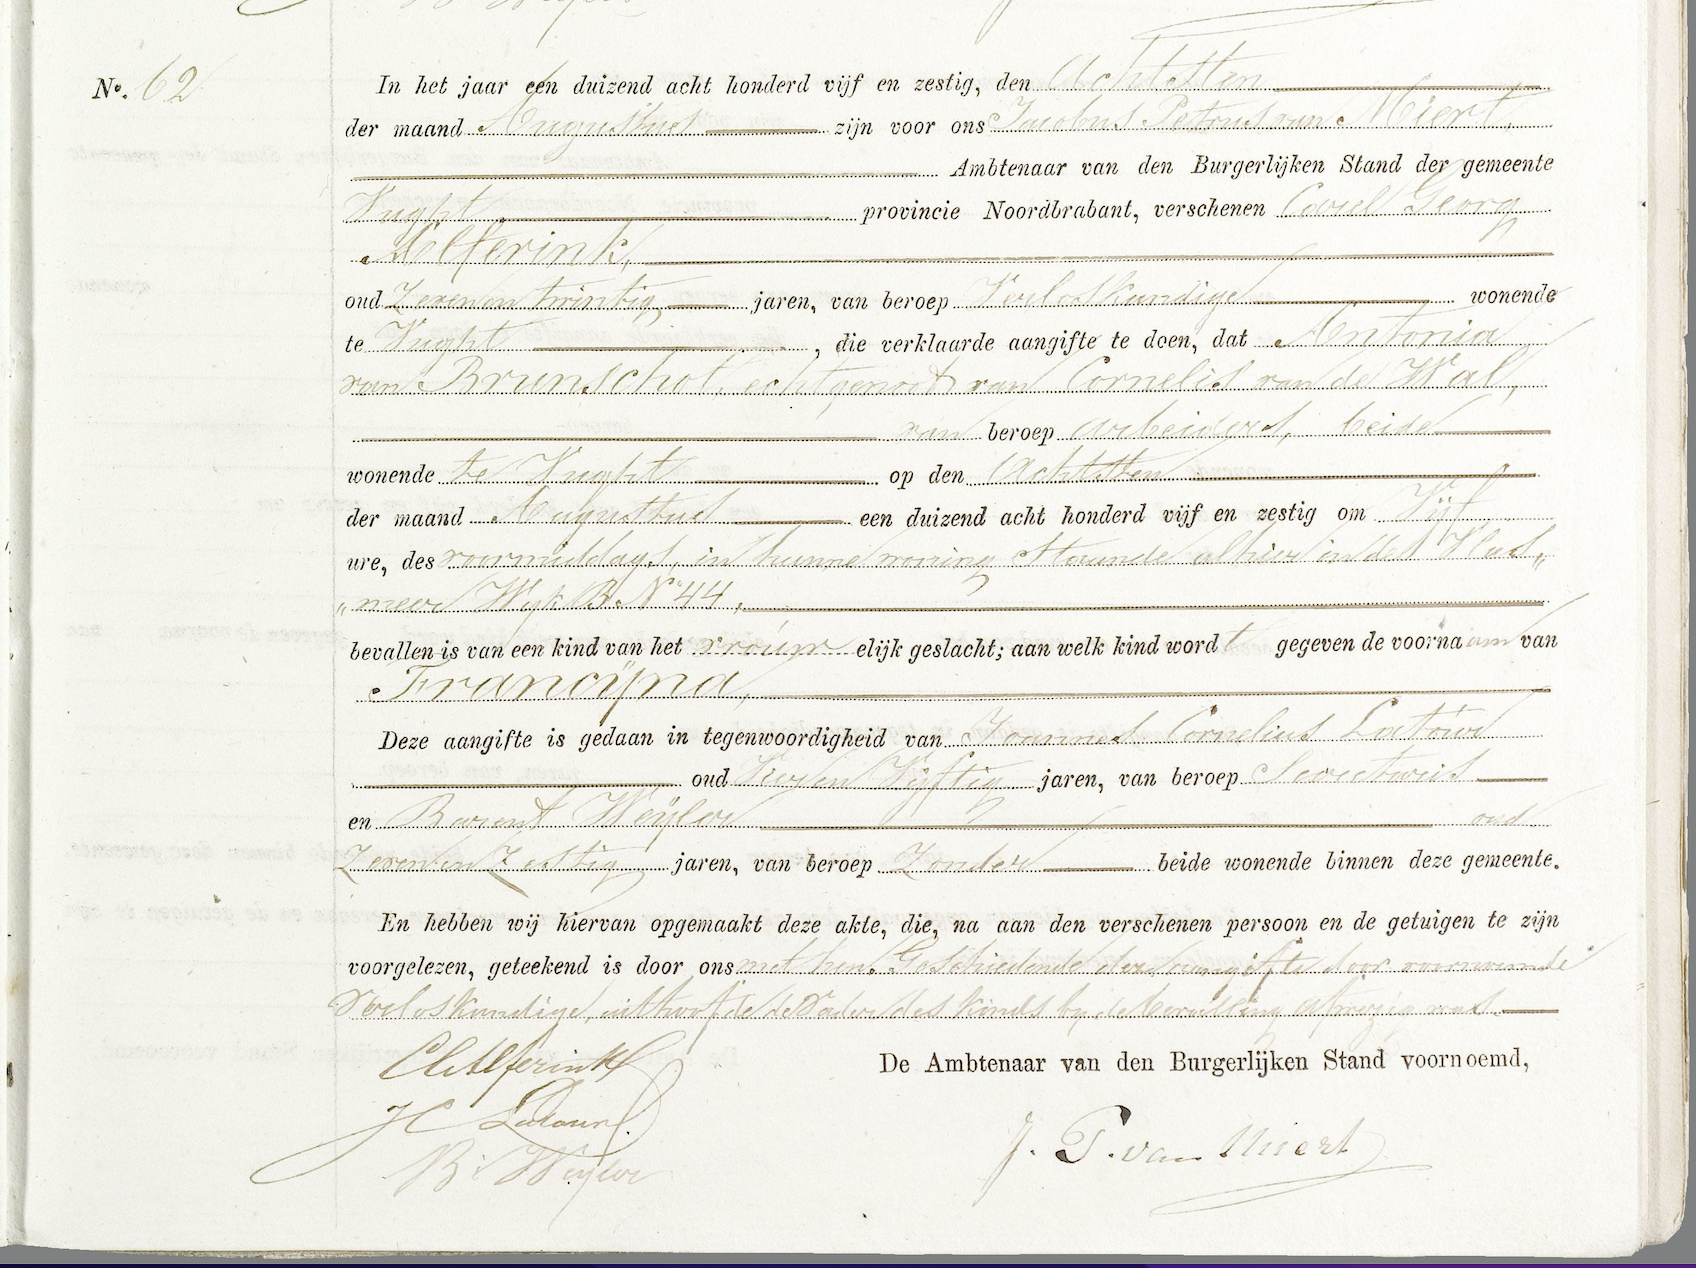 No. 62
In het jaar een duizend acht honderd vijf en zestig, den Achtsten
der maand Augustus zijn voor ons Jacobus Petrus van Miert,
Ambtenaar van den Burgerlijken Stand der gemeente
Vught provincie Noordbrabant, verschenen Carel Georg
Alferink,
oud Zeven en twintig jaren, van beroep Verloskundige wonende
te Vught , die verklaarde aangifte te doen, dat Antonia
van Brunschot, echtgenoot van Cornelis van de Wal,
van beroep arbeiders, beide
wonende te Vught op den Achtsten
der maand Augustus een duizend acht honderd vijf en zestig om Vijf
ure, des voormiddags, in hunne woning staande alhier in de Vlas„
„meer Wijk B. No 44,
bevallen is van een kind van het vrouw elijk geslacht; aan welk kind wordt gegeven de voornaam van
Francijna,
Deze aangifte is gedaan in tegenwoordigheid van Joannes Cornelius Latour
oud en Vijftig jaren, van beroep Secretaris
en Barent Weijler oud
Zeven en Zestig jaren, van beroep Zonder beide wonende binnen deze gemeente.
En hebben wij hiervan opgemaakt deze akte, die, na aan den verschenen persoon en de getuigen te zijn
voorgelezen, geteekend is door ons met hen. Geschiedende deze aangifte door voornoemde
Verloskundige, uithoofde de Vader des kinds bij de bevalling afwezig was.
Alferink
De Ambtenaar van den Burgerlijken Stand voornoemd,
Latour
J. P. van Miert
B. Weijler